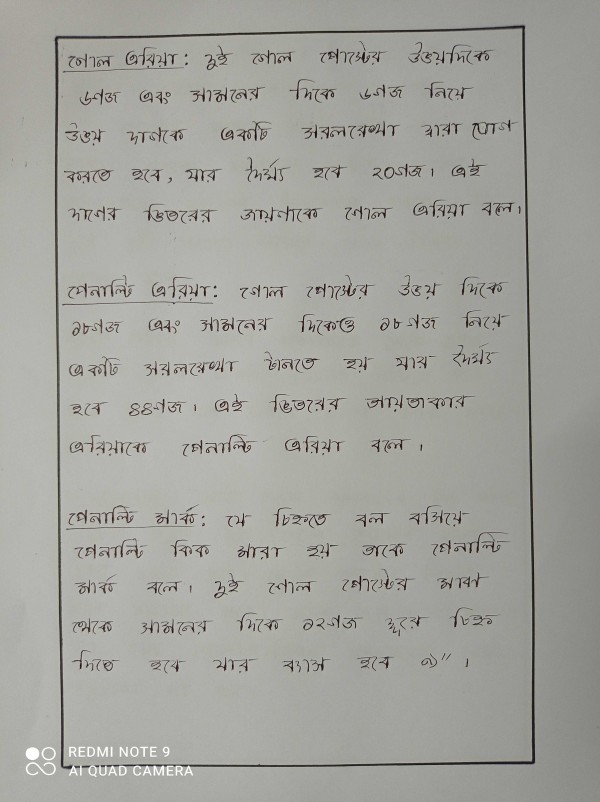 গোল এরিয়া: দুই গোল পোস্টের উভয়দিকে
৬গজ এবং সামনের দিকে ৬গজ নিয়ে
উভয় দাগকে একটি সরলরেখা দ্বারা যোগ
করতে হবে, যার দৈর্ঘ্য হবে ২০গজ। এই
দাগের ভিতরের জায়গাকে গোল এরিয়া বলে।
পেনাল্টি এরিয়া: গোল পোস্টের উভয় দিকে
১৮গজ এবং সামনের দিকেও ১৮গজ নিয়ে
একটি সরলরেখা টানতে হয় যার দৈর্ঘ্য
হবে ৪৪গজ। এই ভিতরের আয়তাকার
এরিয়াকে পেনাল্টি এরিয়া বলে।
পেনাল্টি মার্ক: যে চিহ্নতে বল বসিয়ে
পেনাল্টি কিক মারা হয় তাকে পেনাল্টি
মার্ক বলে। দুই গোল পোস্টের মাঝ
থেকে সামনের দিকে ১২গজ দূরে চিহ্ন
দিতে হবে যার ব্যাস হবে ৯"।
REDMI NOTE 9
AI QUAD CAMERA